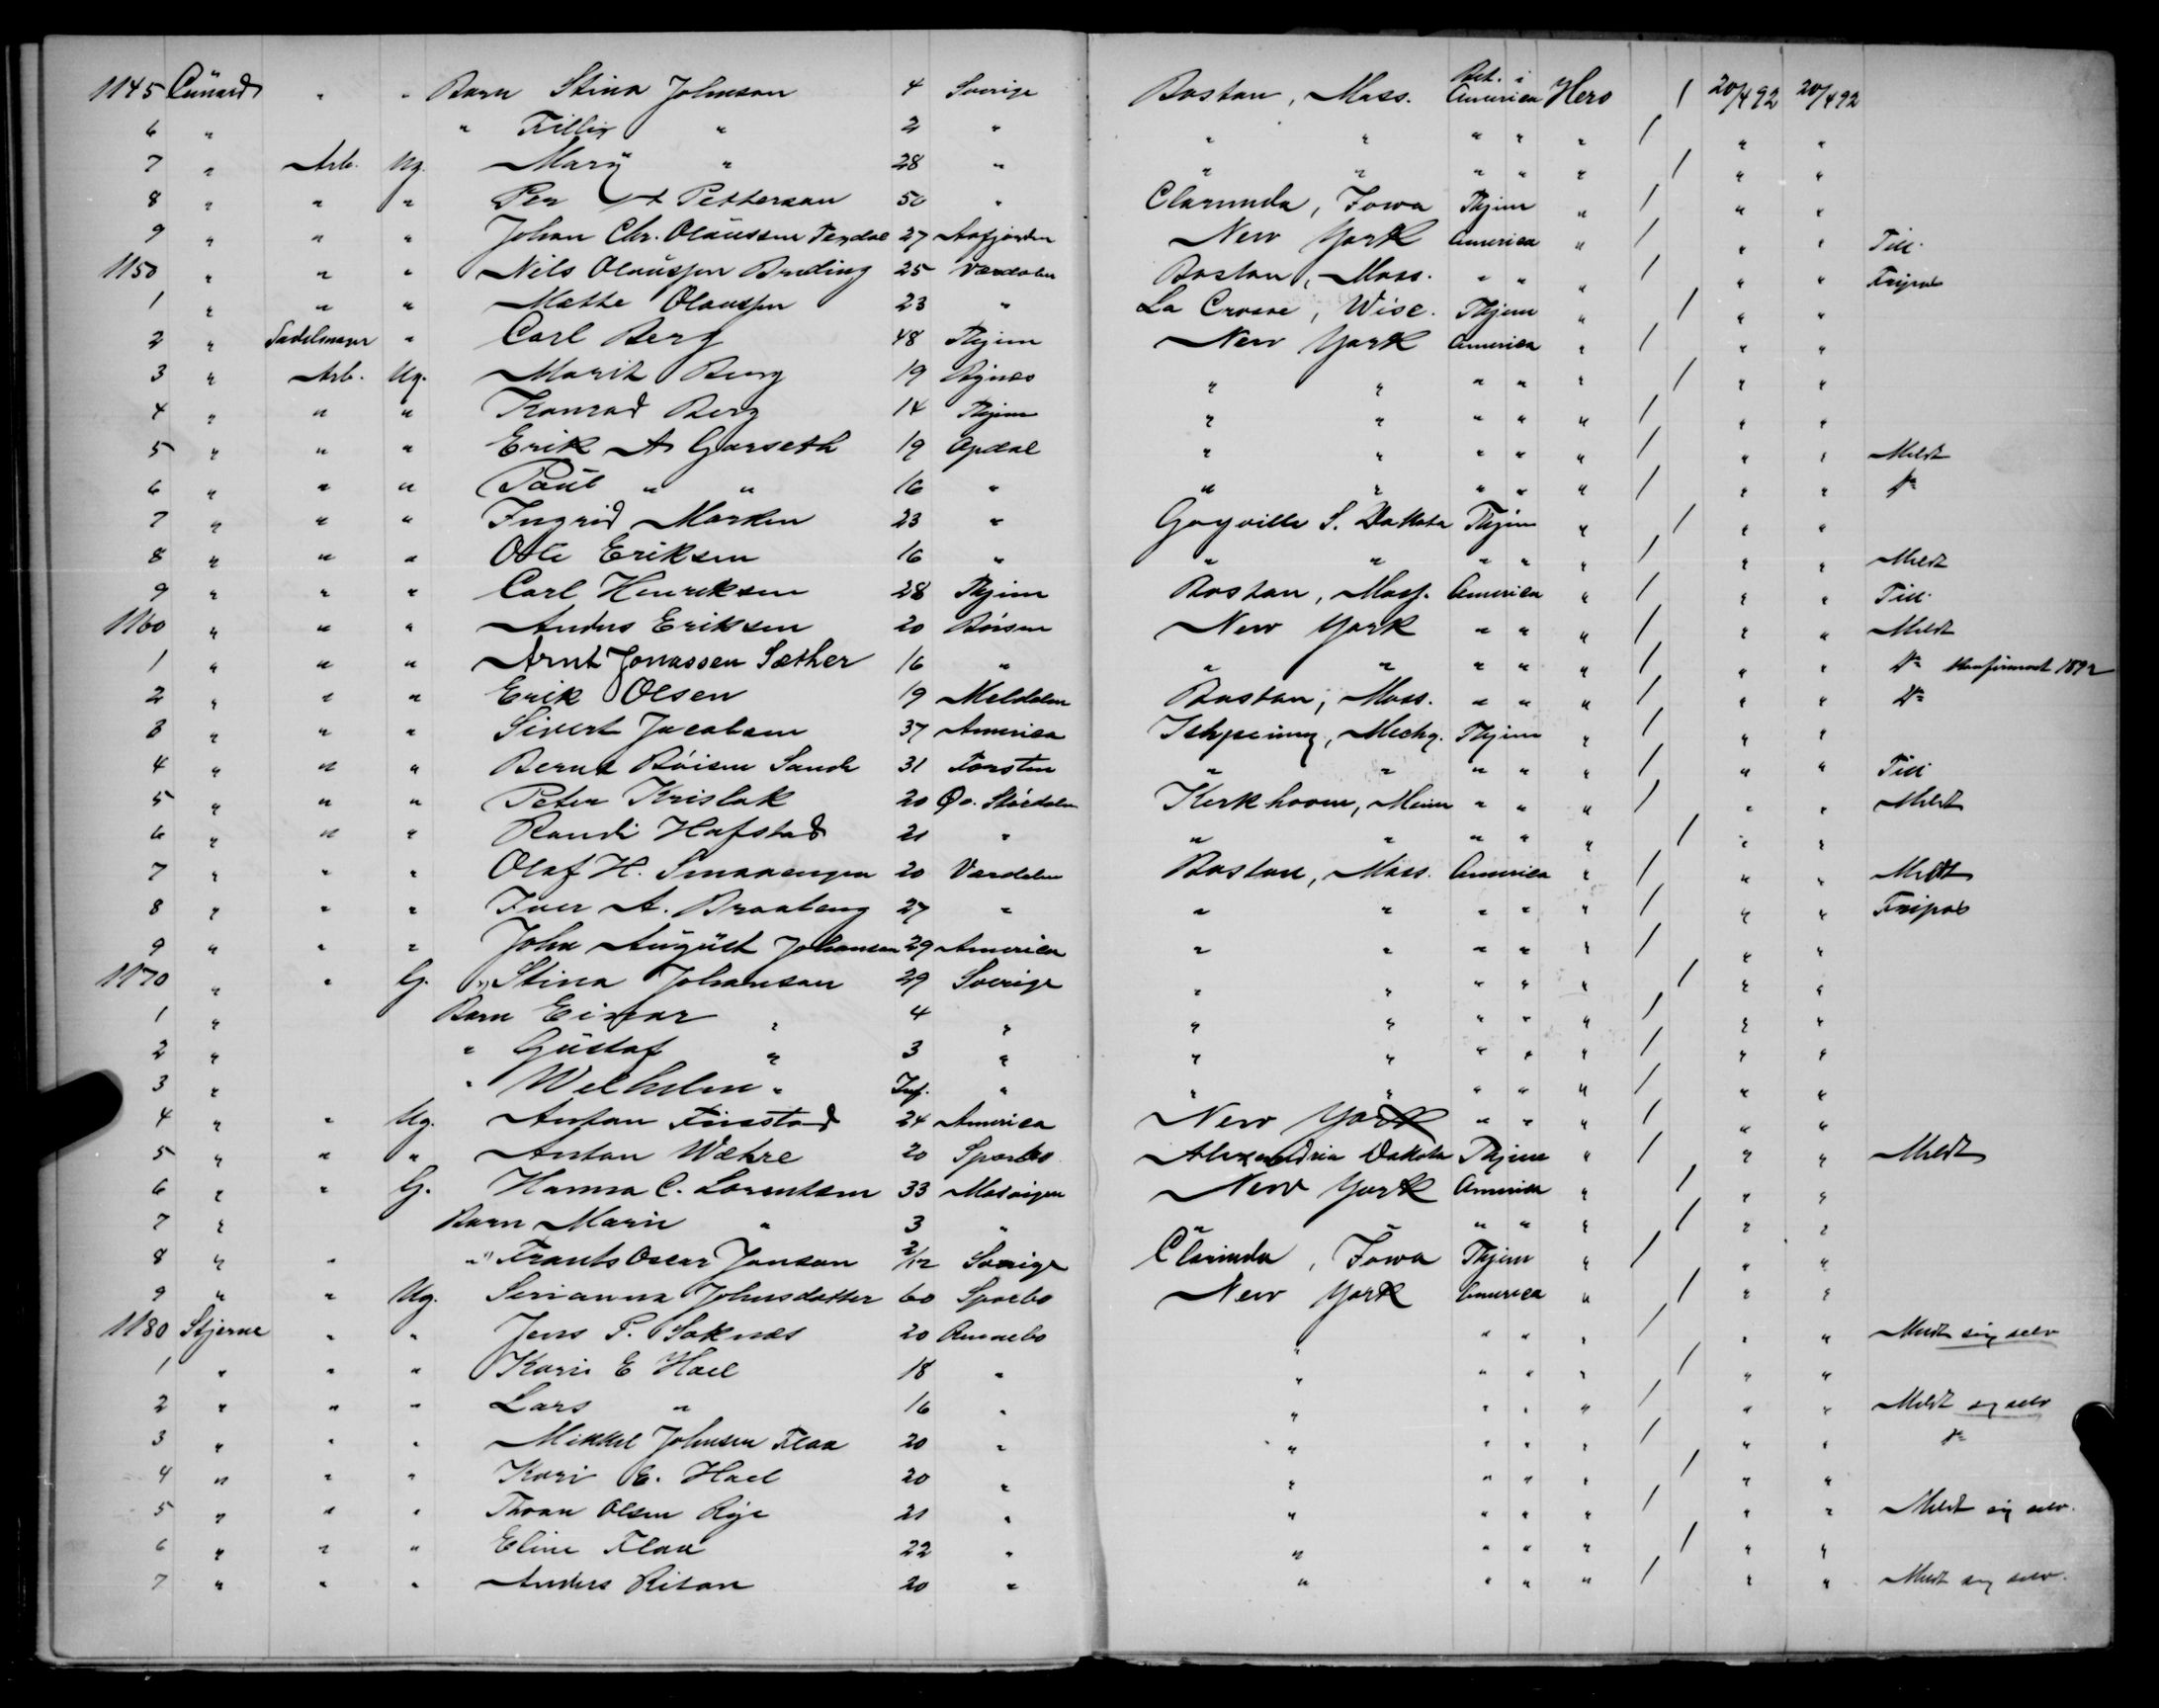 1145 Cunard " " Barn Stina Johnson 4 Sverige Boston, Mass. Bet. i America Hero 1 20/4 92 20/4 92
6 " " Tillis " 2 " " " " " " 1 " "
7 " Arb. Ug. Mary " 28 " " " " " " 1 " "
8 " " " Per Petterson 50 " Clarinda, Iowa Thjem " 1 " "
9 " " " Johan Chr. Olaussen 27 Aafjorden New York America " 1 " " Till.
1150 " " " Nils Olaussen Breding 25 Værdalen Boston, Mass. " " " 1 " " Fripas
1 " " " Mette Olaussen 23 " La Crosse, Wisc. Thjem " 1 " "
2 " Sadelmager " Carl Berg 48 Thjem New York America " 1 " "
3 " Arb. Ug. Marit Berg 19 Bynes " " " " " 1 " "
4 " " " Konrad Berg 14 Thjem " " " " " 1 " "
5 " " " Erik A Garseth 19 Opdal " " " " " 1 " " Meldt
6 " " " Paul " " 16 " " " " " " 1 " " Do
7 " " " Ingrid Marken 23 " Gayville S. Dakota Thjem " 1 " "
8 " " " Ole Eriksen 16 " " " " " " 1 " " Meldt
9 " " " Carl Henriksen 28 Thjem Boston, Mass. America " 1 " " Till.
1160 " " " Anders Eriksen 20 Børsen New York " " " 1 " " Meldt
1 " " " Arnt Jonassen Sæther 16 " " " " " " 1 " " Do Konfirmert 1892
2 " " " Erik Olsen 19 Meldalen Boston, Mass. " " " 1 " " Do
3 " " " Sivert Jacobsen 37 America Ishpeming, Michg. Thjem " 1 " "
4 " " " Bernt Böisen Sande 31 " " " " " 1 " " Till
5 " " " Peter Krislok 20 Øv. Stördalen Kerkhoven, Minn " " " 1 " " Meldt
6 " " " Randi Hafstad 21 " " " " " " 1 " "
7 " " " Olaf H. 20 Værdalen Boston, Mass. America " 1 " " Meldt
8 " " " Iver A. Braateng 27 " " " " " " 1 " " Fripas
9 " " " John August Johanson 29 America " " " " " 1 " "
1170 " " G. " Stina Johanson 29 Sverige " " " " " 1 " "
1 " Barn Einar " 4 " " " " " " 1 " "
2 " " Gustaf " 3 " " " " " " 1 " "
3 " " Wilhelm " Inf. " " " " " " 1 " "
4 " " Ug. Anton Finstad 24 America New York " " " 1 " "
5 " " " Anton Wæhre 20 Sparbo Alexandria Dakota Thjem " 1 " " Meldt
6 " " G. Hanna C. Lorentsen 33 New York America " 1 " "
7 " Barn Marie " 3 " " " " " " 1 " "
8 " " " Frants Oscar Jonson 2/12 Sverige Clarinda, Iowa Thjem " 1 " "
9 " " Ug. Serianna Johnsdatter 60 Sparbo New York America " 1 " "
1180 Stjerne " " Jens P. Soknes 20 Rennebo " " " " 1 " " Meldt sig selv
1 " " " Kari E Hoel 18 " " " " " 1 " "
2 " " " Lars " 16 " " " " " 1 " " Meldt sig selv
3 " " " Mikkel Johnsen Flaa 20 " " " " " 1 " " Do
4 " " " Kari E. Hoel 20 " " " " " 1 " "
5 " " " Olsen Rye 21 " " " " " 1 " " Meldt sig selv.
6 " " " Eline Flaa 22 " " " " " 1 " "
7 " " " Anders Ritan 20 " " " " " 1 " " Meldt sig selv.